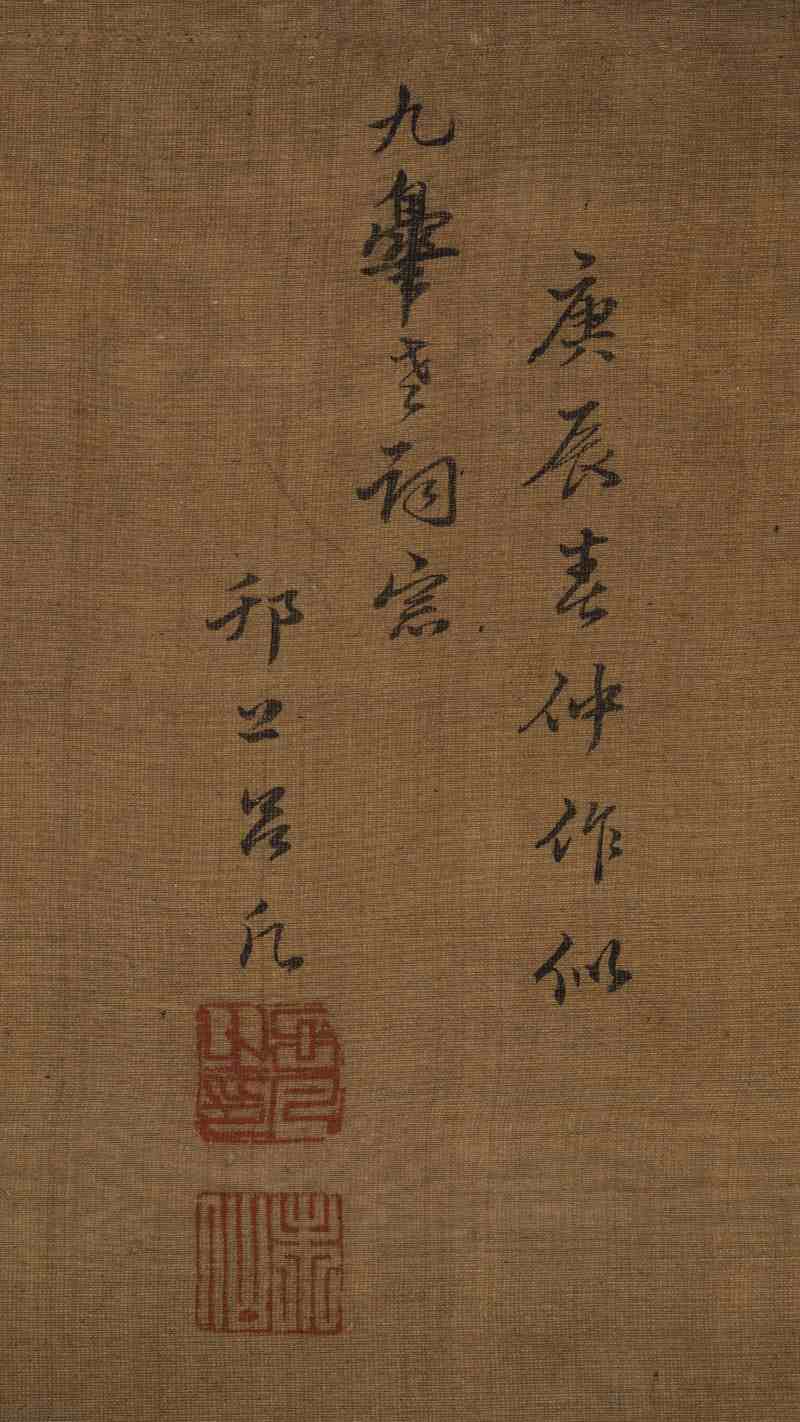 庚辰春仲作似
九臯老詞宗
邗上呂凡